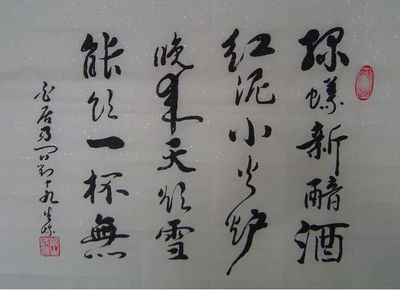 绿蟻新醅酒
红泥小火炉
晚来天欲雪
能饮一杯無
白居易问刘十九